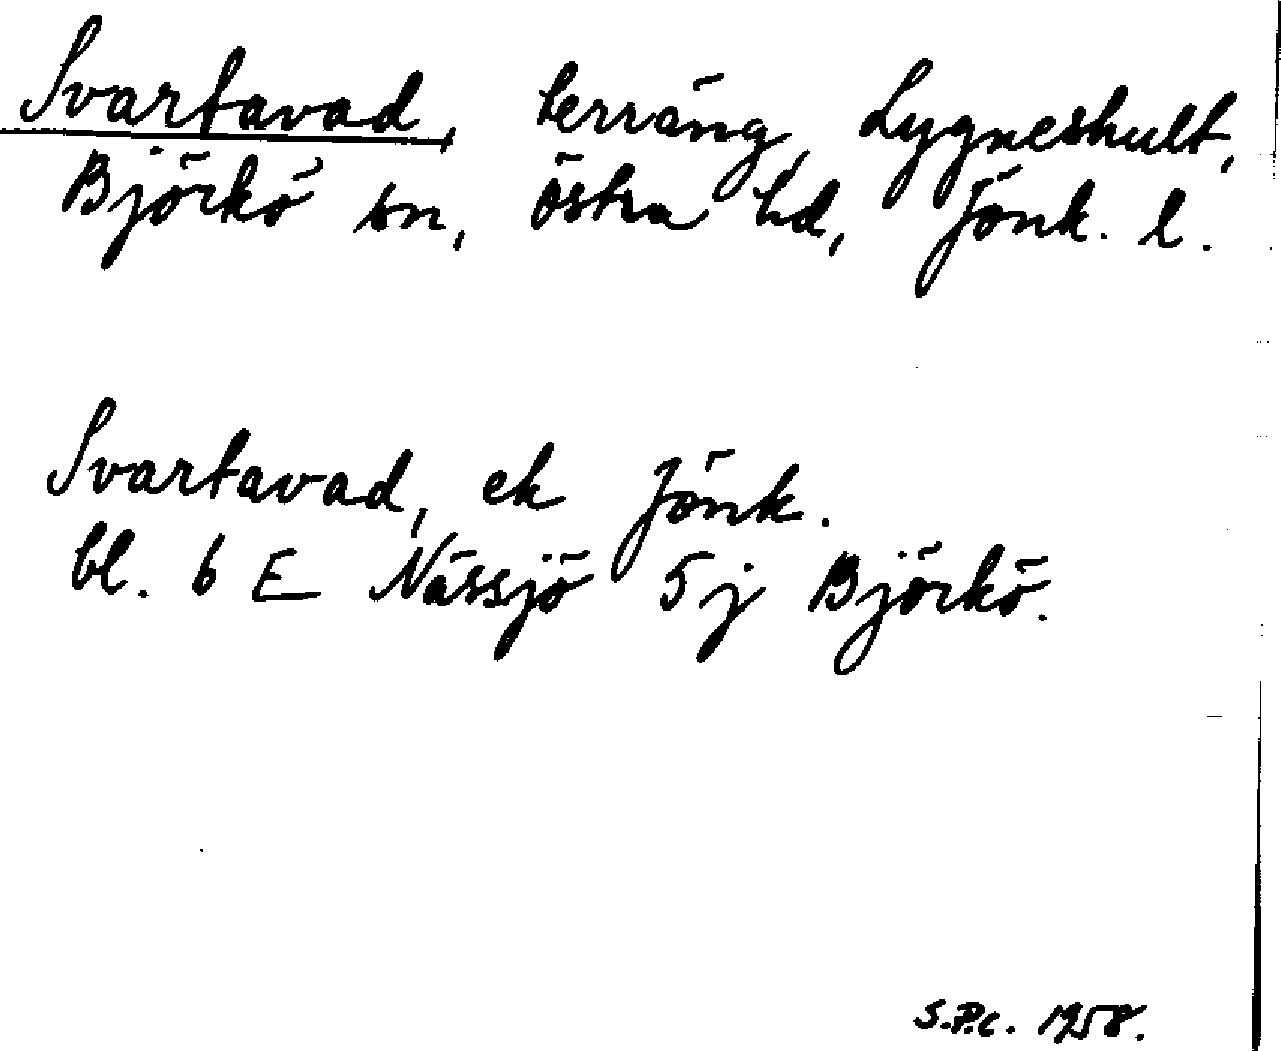 Svartavad, terräng, Lygneshult,
Björkö sn, östra hd, Jönk. l.
Svartavad, ek Jönk.
bl. 6 E Nässjö 5 j Björkö.
S.P.C. 1958.